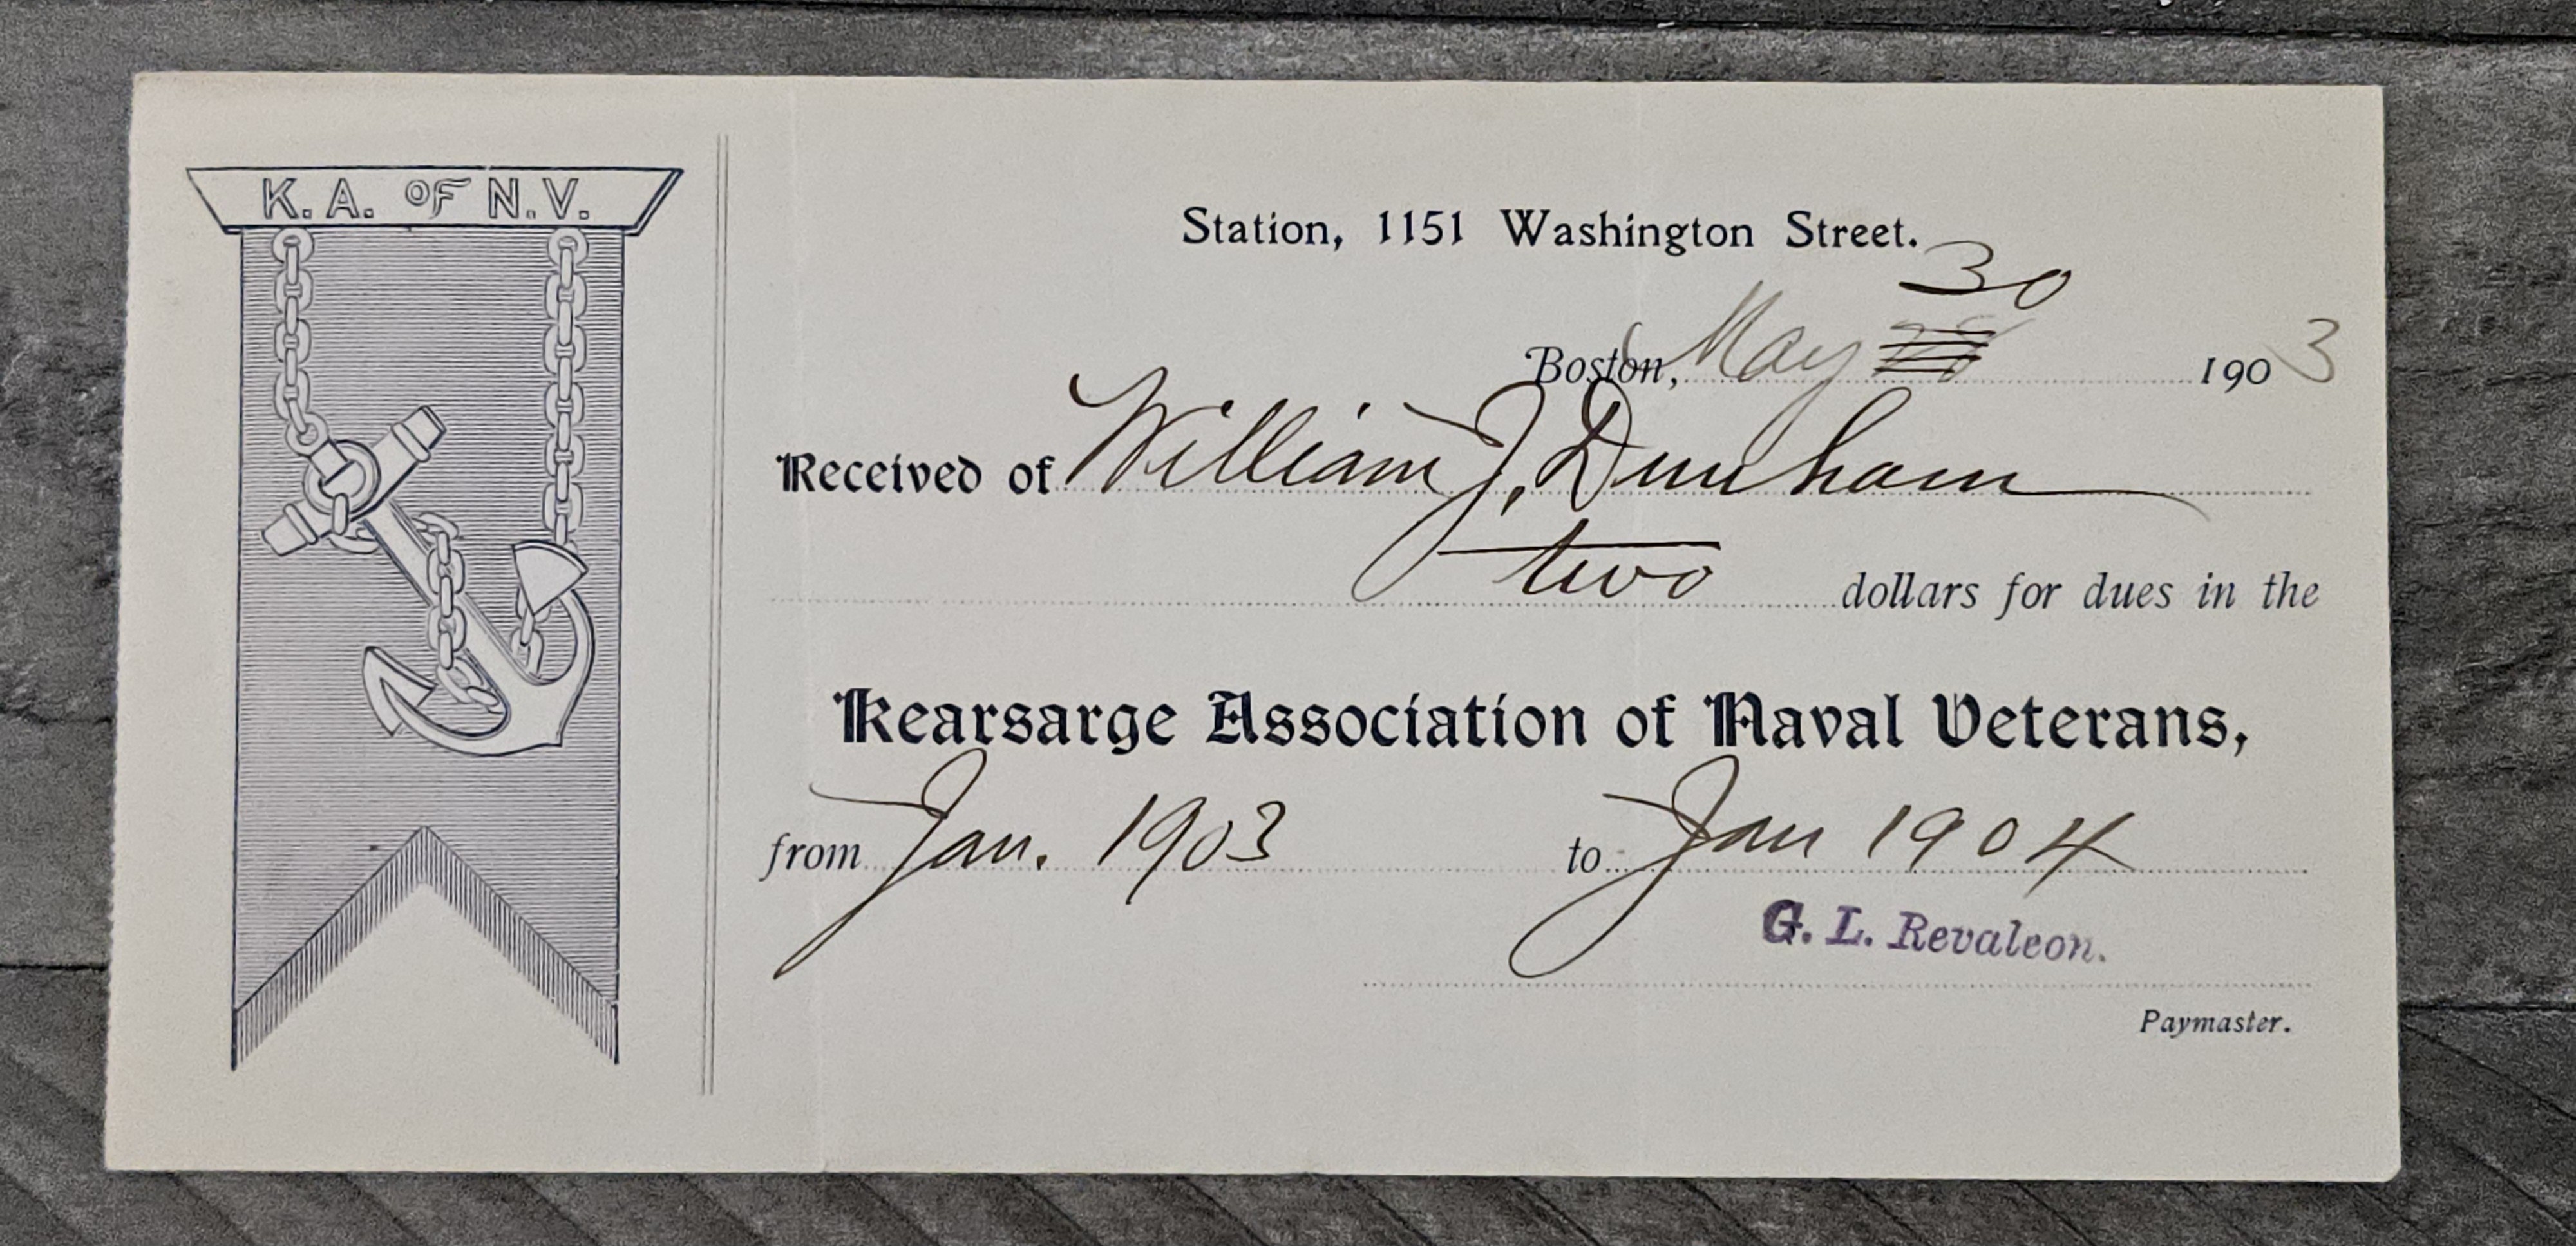 K. A. OF N. V.
Station, 1151 Washington Street.
30
Boston, May 28 1903
Received of William J. Dunham
two dollars for dues in the
Kearsarge Association of Naval Veterans,
from Jan. 1903 to Jan 1904
G. L. Revaleon.
Paymaster.